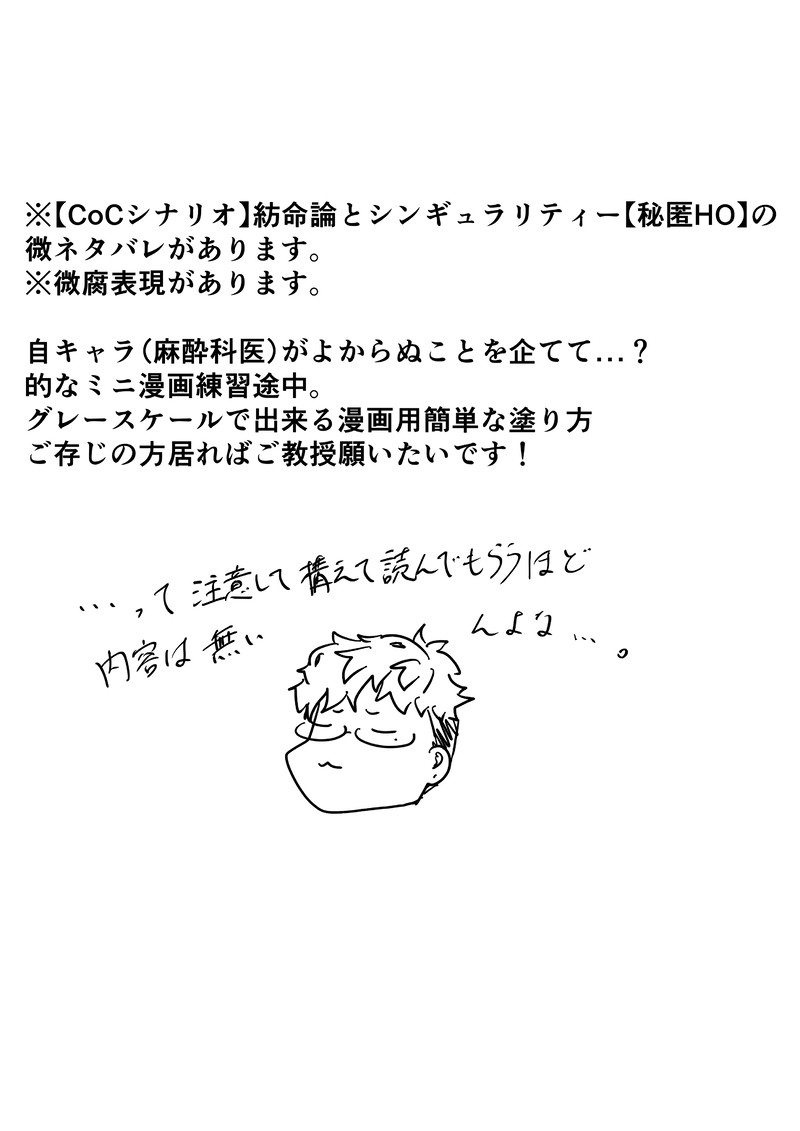 ※【CoCシナリオ】紡命論とシンギュラリティー【秘匿HO】の
微ネタバレがあります。
※微腐表現があります。
自キャラ(麻酔科医)がよからぬことを企てて…？
的なミニ漫画練習途中。
グレースケールで出来る漫画用簡単な塗り方
ご存じの方居ればご教授願いたいです！
…って注意して構えて読んでもらうほど
内容は無いんよな…。